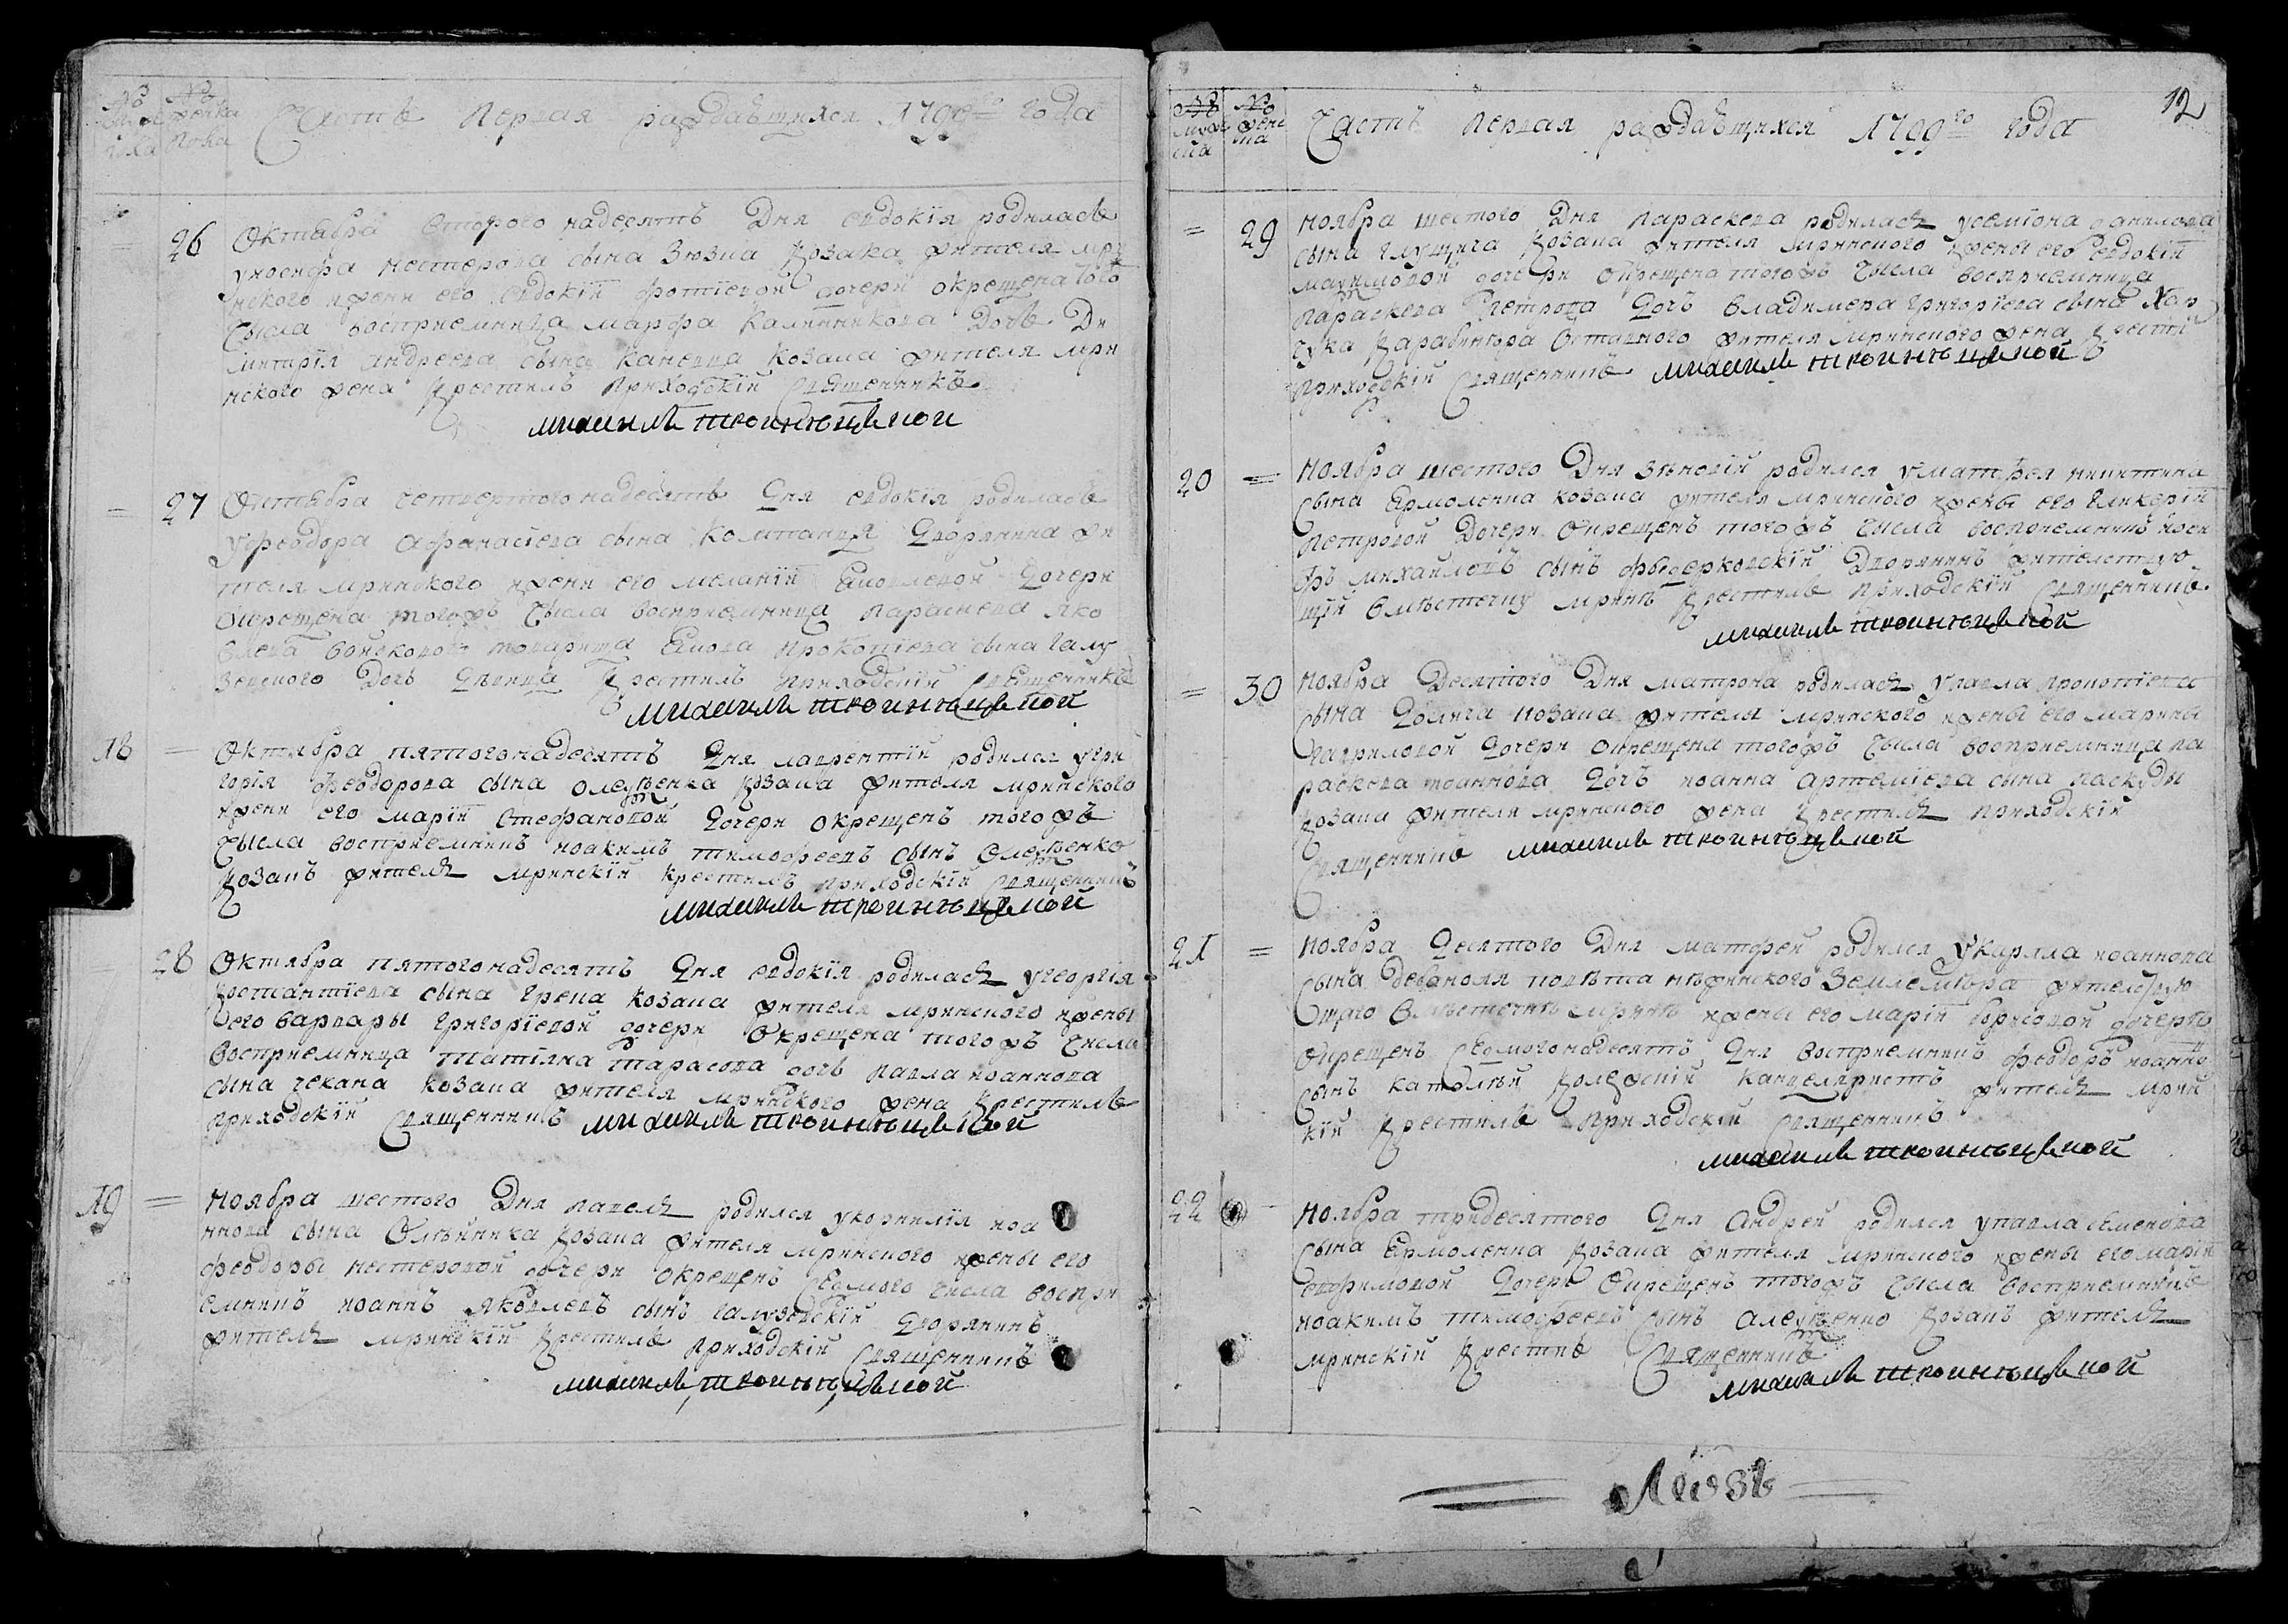 Часть первая раждавшихся 1799го года
26 Октября второго надесять дня евдокїя родилась
уиосифа нестерова сына Зюзка козака жителя мри
нского жени его евдокїи фотїевой дочери окрещена того
числа восприемница марфа Калинникова дочь Ди
митрїя андреева сына каневца козака жителя мри
нского жена крестилъ приходскїй священникъ
михаилъ
27 Октября четвертого надесять дня евдокїя родилась
уфеодора афанасїева сына дворянина жи
теля мринского жени его меланїи Яковлевой дочери
окрещена тогожъ числа восприемница параскева яко
влева войскового товарища Якова прокопїева сына галу
зевского дочь девица крестилъ приходскїй священникъ
михаилъ
18 Октября пятогонадесять дня лаврентїй родился угри
горїя феодорова сына козака жителя мринского
жени его марїи стефановой дочери окрещенъ тогожъ
числа восприемникъ иоакимъ тимофеевъ сынъ
козакъ житель мринскїй крестилъ приходскїй священникъ
михаилъ
28 Октября пятогонадесять дня евдокїя родилась угеоргїя
костантїева сына грека козака жителя мринского жены
его варвары григорїевой дочери окрещена тогожъ числа
восприемница татїяна тарасова дочь павла иоаннова
сына чекана козака жителя мринского жена крестилъ
приходскїй священникъ михаилъ
19 ноября шестого дня павелъ родился укорнилїя иоа
ннова сына Олѣйника козака жителя мринского жены его
феодоры нестеровой дочери окрещенъ седмого числа воспри
емникъ иоаннъ яковлевъ сынъ галузевскїй дворянинъ
житель мринскїй крестилъ приходскїй священникъ
михаилъ
12
Часть первая раждавшихся 1799го года
29 ноября шестого дня параскева родилась усемїона данилова
сына козака жителя мринского жены его евдокїи
максимовой дочери окрещена тогожъ числа восприемница
параскева петрова дочь владимера григорїева сына
карабинера отставного жителя мринского жена крести
приходскїй священникъ михаилъ
20 ноября шестого дня зѣновїй родился уматфея никитина
сына Ермоленка козака жителя мринского жены его гликерїи
петровой дочери окрещенъ тогожъ числа восприемникъ иоси
фъ михайловъ сынъ дворянинъ жителствую
щїй вмѣстечку мринѣ крестилъ приходскїй священникъ
михаилъ
30 ноября десятого дня матрона родилась упавла прокопїева
сына козака жителя мринского жены его марины
гавриловой дочери окрещена тогожъ числа восприемница па
раскева иоаннова дочь иоанна артемїева сына паскуды
козака жителя мринского жена крестилъ приходскїй
священникъ михаилъ
21 ноября десятого дня матфей родился укарла иоаннова
сына повѣта нѣжинского землемѣра жителствую
щаго вмѣстечкѣ мринѣ жены его марїи борисовой дочерѣ
окрещенъ седмогонадесять дня восприемникъ феодоръ иоанно
сынъ колежскїй канцеляристъ житель мрин
кїй крестилъ приходскїй священникъ
михаилъ
22 ноября тридесятого дня андрей родился упавла семенова
сына Ермоленка козака жителя мринского жены его марїи
евфимовой дочери окрещенъ тогожъ числа восприемникъ
иоакимъ тимофеевъ сынъ козакъ житель
мринскїй крестилъ священникъ
михаилъ